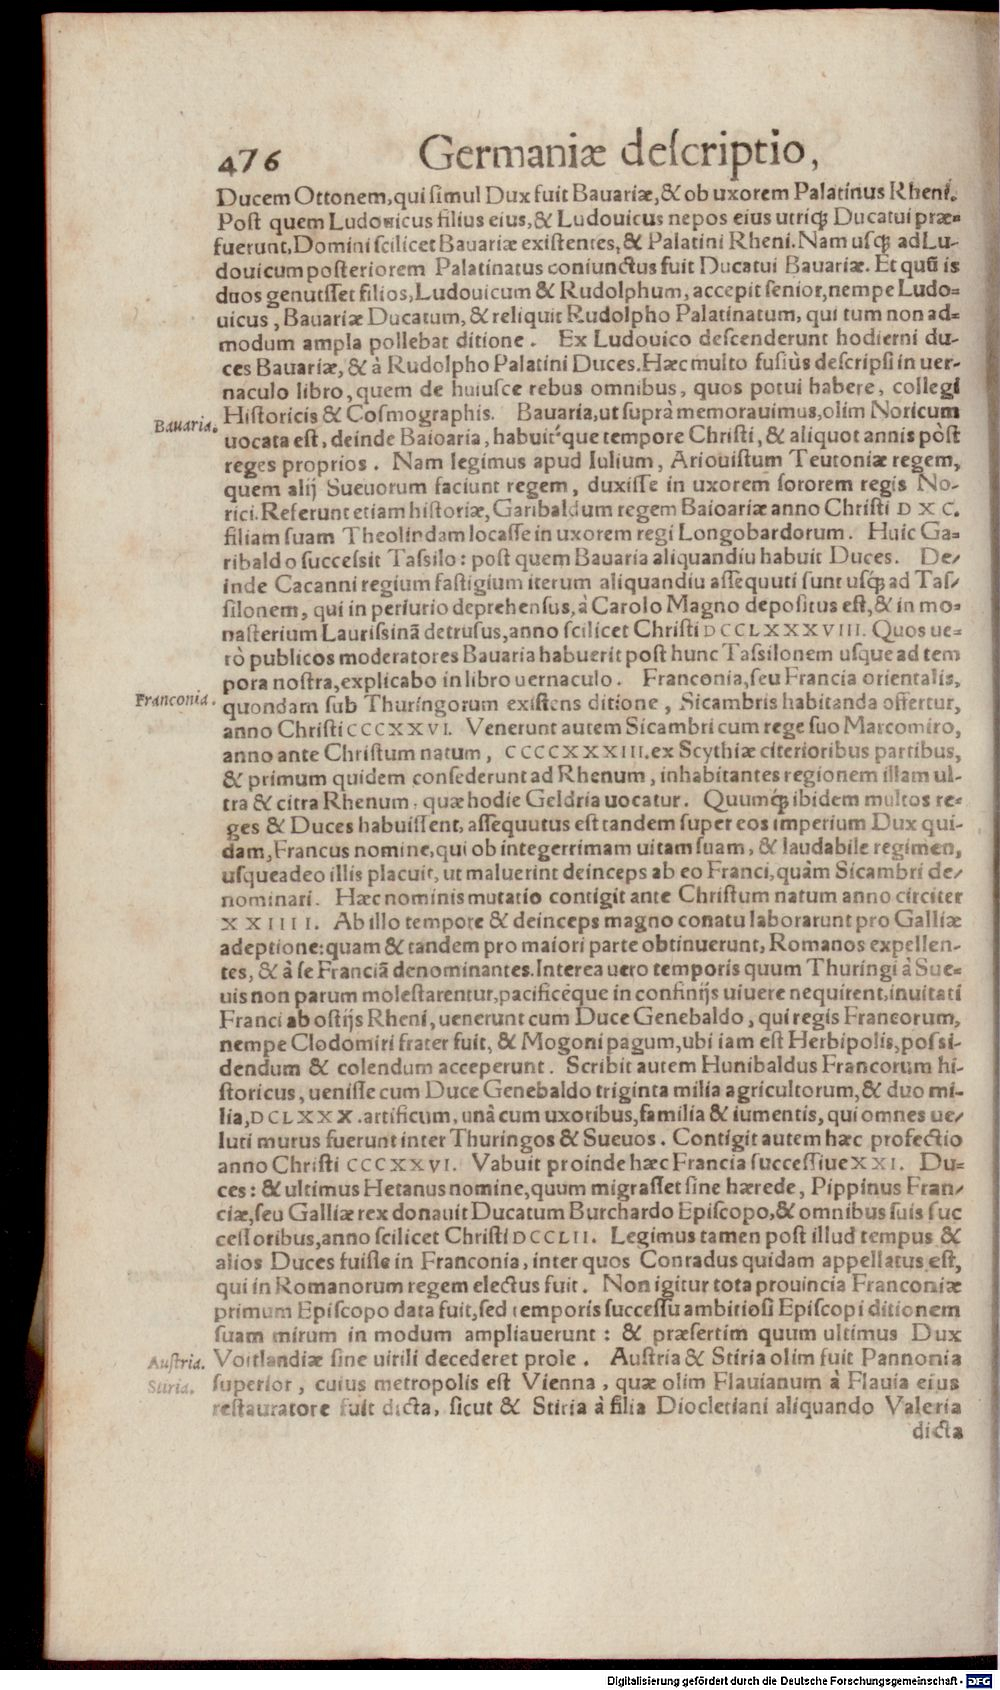 476 Germaniæ deſcriptio,
Ducem Ottonem, qui ſimul Dux fuit Bauariæ, & ob uxorem Palatinus Rheni.
Poſt quem Ludouicus filius eius, & Ludouicus nepos eius utriqꝫ Ducatui præ=
fuerunt, Domini ſcilicet Bauariæ exiſtentes, & Palatini Rheni. Nam uſqꝫ ad Lu-
douicum poſteriorem Palatinatus coniunctus fuit Ducatui Bauariæ. Et quũ is
duos genuiſſet filios, Ludouicum & Rudolphum, accepit ſenior, nempe Ludo=
uicus, Bauariæ Ducatum, & reliquit Rudolpho Palatinatum, qui tum non ad=
modum ampla pollebat ditione. Ex Ludouico deſcenderunt hodierni du-
ces Bauariæ, & à Rudolpho Palatini Duces. Hæc multo fuſiùs deſcripſi in uer-
naculo libro, quem de huiuſce rebus omnibus, quos potui habere, collegi
Hiſtoricis & Coſmographis. Bauaria, ut ſuprà memorauimus, olim Noricum
Bauaria.
uocata eſt, deinde Baioaria, habuit'que tempore Chriſti, & aliquot annis pòſt
reges proprios. Nam legimus apud Iulium, Ariouiſtum Teutoniæ regem,
quem alij Sueuorum faciunt regem, duxiſſe in uxorem ſororem regis No-
rici. Referunt etiam hiſtoriæ, Garibaldum regem Baioariæ anno Chriſti D X C.
filiam ſuam Theolindam locaſſe in uxorem regi Longobardorum. Huic Ga=
ribaldo ſucceſsit Taſsilo: poſt quem Bauaria aliquandiu habuit Duces. De/
inde Cacanni regium faſtigium iterum aliquandiu aſſequuti ſunt uſqꝫ ad Taſ/
ſilonem, qui in periurio deprehenſus, à Carolo Magno depoſitus eſt, & in mo=
naſterium Lauriſsinã detruſus, anno ſcilicet Chriſti DCCLXXXVIII. Quos ue=
rò publicos moderatores Bauaria habuerit poſt hunc Taſsilonem uſque ad tem
pora noſtra, explicabo in libro uernaculo. Franconia, ſeu Francia orientalis,
Franconia.
quondam ſub Thuringorum exiſtens ditione, Sicambris habitanda offertur,
anno Chriſti CCCXXVI. Venerunt autem Sicambri cum rege ſuo Marcomiro,
anno ante Chriſtum natum, CCCCXXXIII. ex Scythiæ citerioribus partibus,
& primum quidem conſederunt ad Rhenum, inhabitantes regionem illam ul-
tra & citra Rhenum, quæ hodie Geldria uocatur. Quumqꝫ ibidem multos re=
ges & Duces habuiſſent, aſſequutus eſt tandem ſuper eos imperium Dux qui-
dam, Francus nomine, qui ob integerrimam uitam ſuam, & laudabile regimen,
uſqueadeo illis placuit, ut maluerint deinceps ab eo Franci, quàm Sicambri de/
nominari. Hæc nominis mutatio contigit ante Chriſtum natum anno circiter
XXIIII. Ab illo tempore & deinceps magno conatu laborarunt pro Galliæ
adeptione: quam & tandem pro maiori parte obtinuerunt, Romanos expellen-
tes, & à ſe Franciã denominantes. Interea uero temporis quum Thuringi à Sue=
uis non parum moleſtarentur, pacificéque in confinijs uiuere nequirent, inuitati
Franci ab oſtijs Rheni, uenerunt cum Duce Genebaldo, qui regis Francorum,
nempe Clodomiri frater fuit, & Mogoni pagum, ubi iam eſt Herbipolis, poſsi-
dendum & colendum acceperunt. Scribit autem Hunibaldus Francorum hi-
ſtoricus, ueniſſe cum Duce Genebaldo triginta milia agricultorum, & duo mi-
lia, DCLXXX. artificum, unà cum uxoribus, familia & iumentis, qui omnes ue/
luti murus fuerunt inter Thuringos & Sueuos. Contigit autem hæc profectio
anno Chriſti CCCXXVI. Vabuit proinde hæc Francia ſucceſſiue XXI. Du=
ces: & ultimus Hetanus nomine, quum migraſſet ſine hærede, Pippinus Fran/
ciæ, ſeu Galliæ rex donauit Ducatum Burchardo Epiſcopo, & omnibus ſuis ſuc
ceſſoribus, anno ſcilicet Chriſti DCCLII. Legimus tamen poſt illud tempus &
alios Duces fuiſſe in Franconia, inter quos Conradus quidam appellatus eſt,
qui in Romanorum regem electus fuit. Non igitur tota prouincia Franconiæ
primum Epiſcopo data fuit, ſed temporis ſucceſſu ambitioſi Epiſcopi ditionem
ſuam mirum in modum ampliauerunt: & præſertim quum ultimus Dux
Voitlandiæ ſine uirili decederet prole. Auſtria & Stiria olim fuit Pannonia
Auſtria.
ſuperior, cuius metropolis eſt Vienna, quæ olim Flauianum à Flauia eius
Stiria.
reſtauratore fuit dicta, ſicut & Stiria à filia Diocletiani aliquando Valeria
dicta
Digitalisierung gefördert durch die Deutsche Forschungsgemeinschaft - DFG